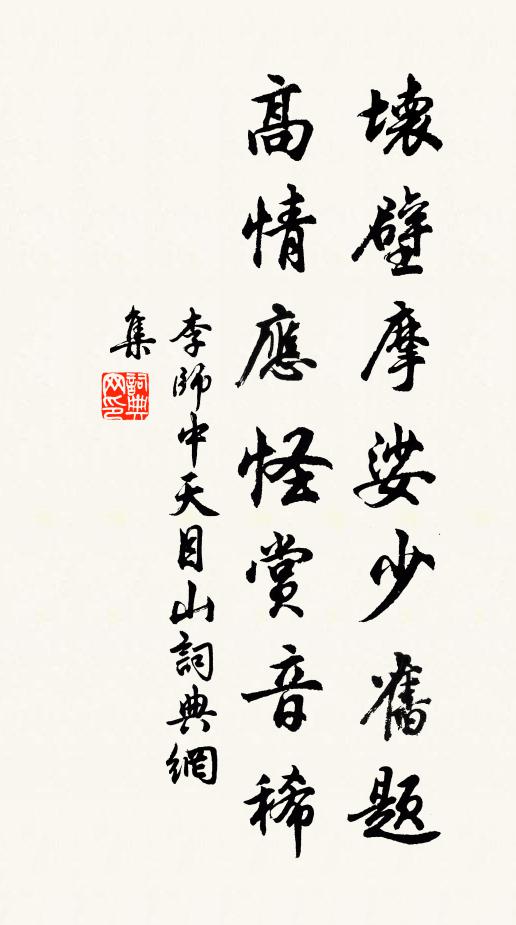 壊壁摩娑少舊題
高情應怪賞音稀
李師中天目山詞典網
集
詞典
网印